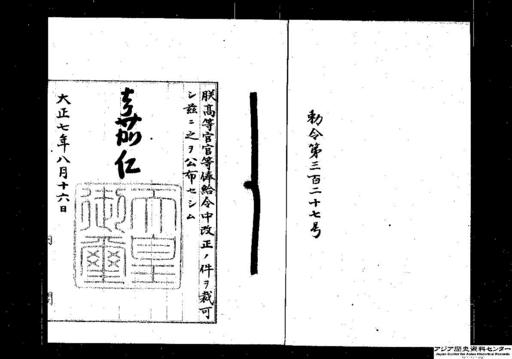 勅令第三百二十七号
朕高等官官等俸給令中改正ノ件ヲ裁可
シ茲ニ之ヲ公布セシム
嘉仁
天皇御璽
大正七年八月十六日
アジア歴史資料センター
Japan Center for Asian Historical Records